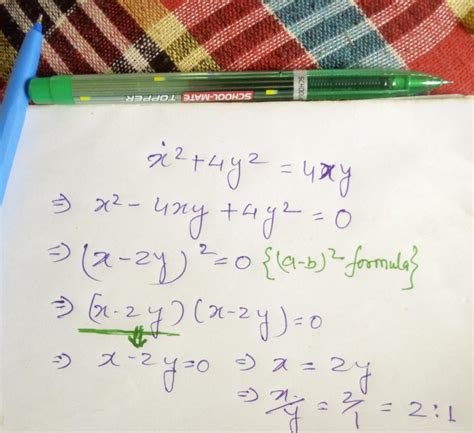 SCHOOL-MATE TOPPER
SCHOOL
x² + 4y² = 4xy
⇒ x² - 4xy + 4y² = 0
⇒ (x - 2y)² = 0 {(a-b)² formula}
⇒ (x - 2y) (x - 2y) = 0
⇒ x - 2y = 0 ⇒ x = 2y
⇒ x/y = 2/1 = 2:1